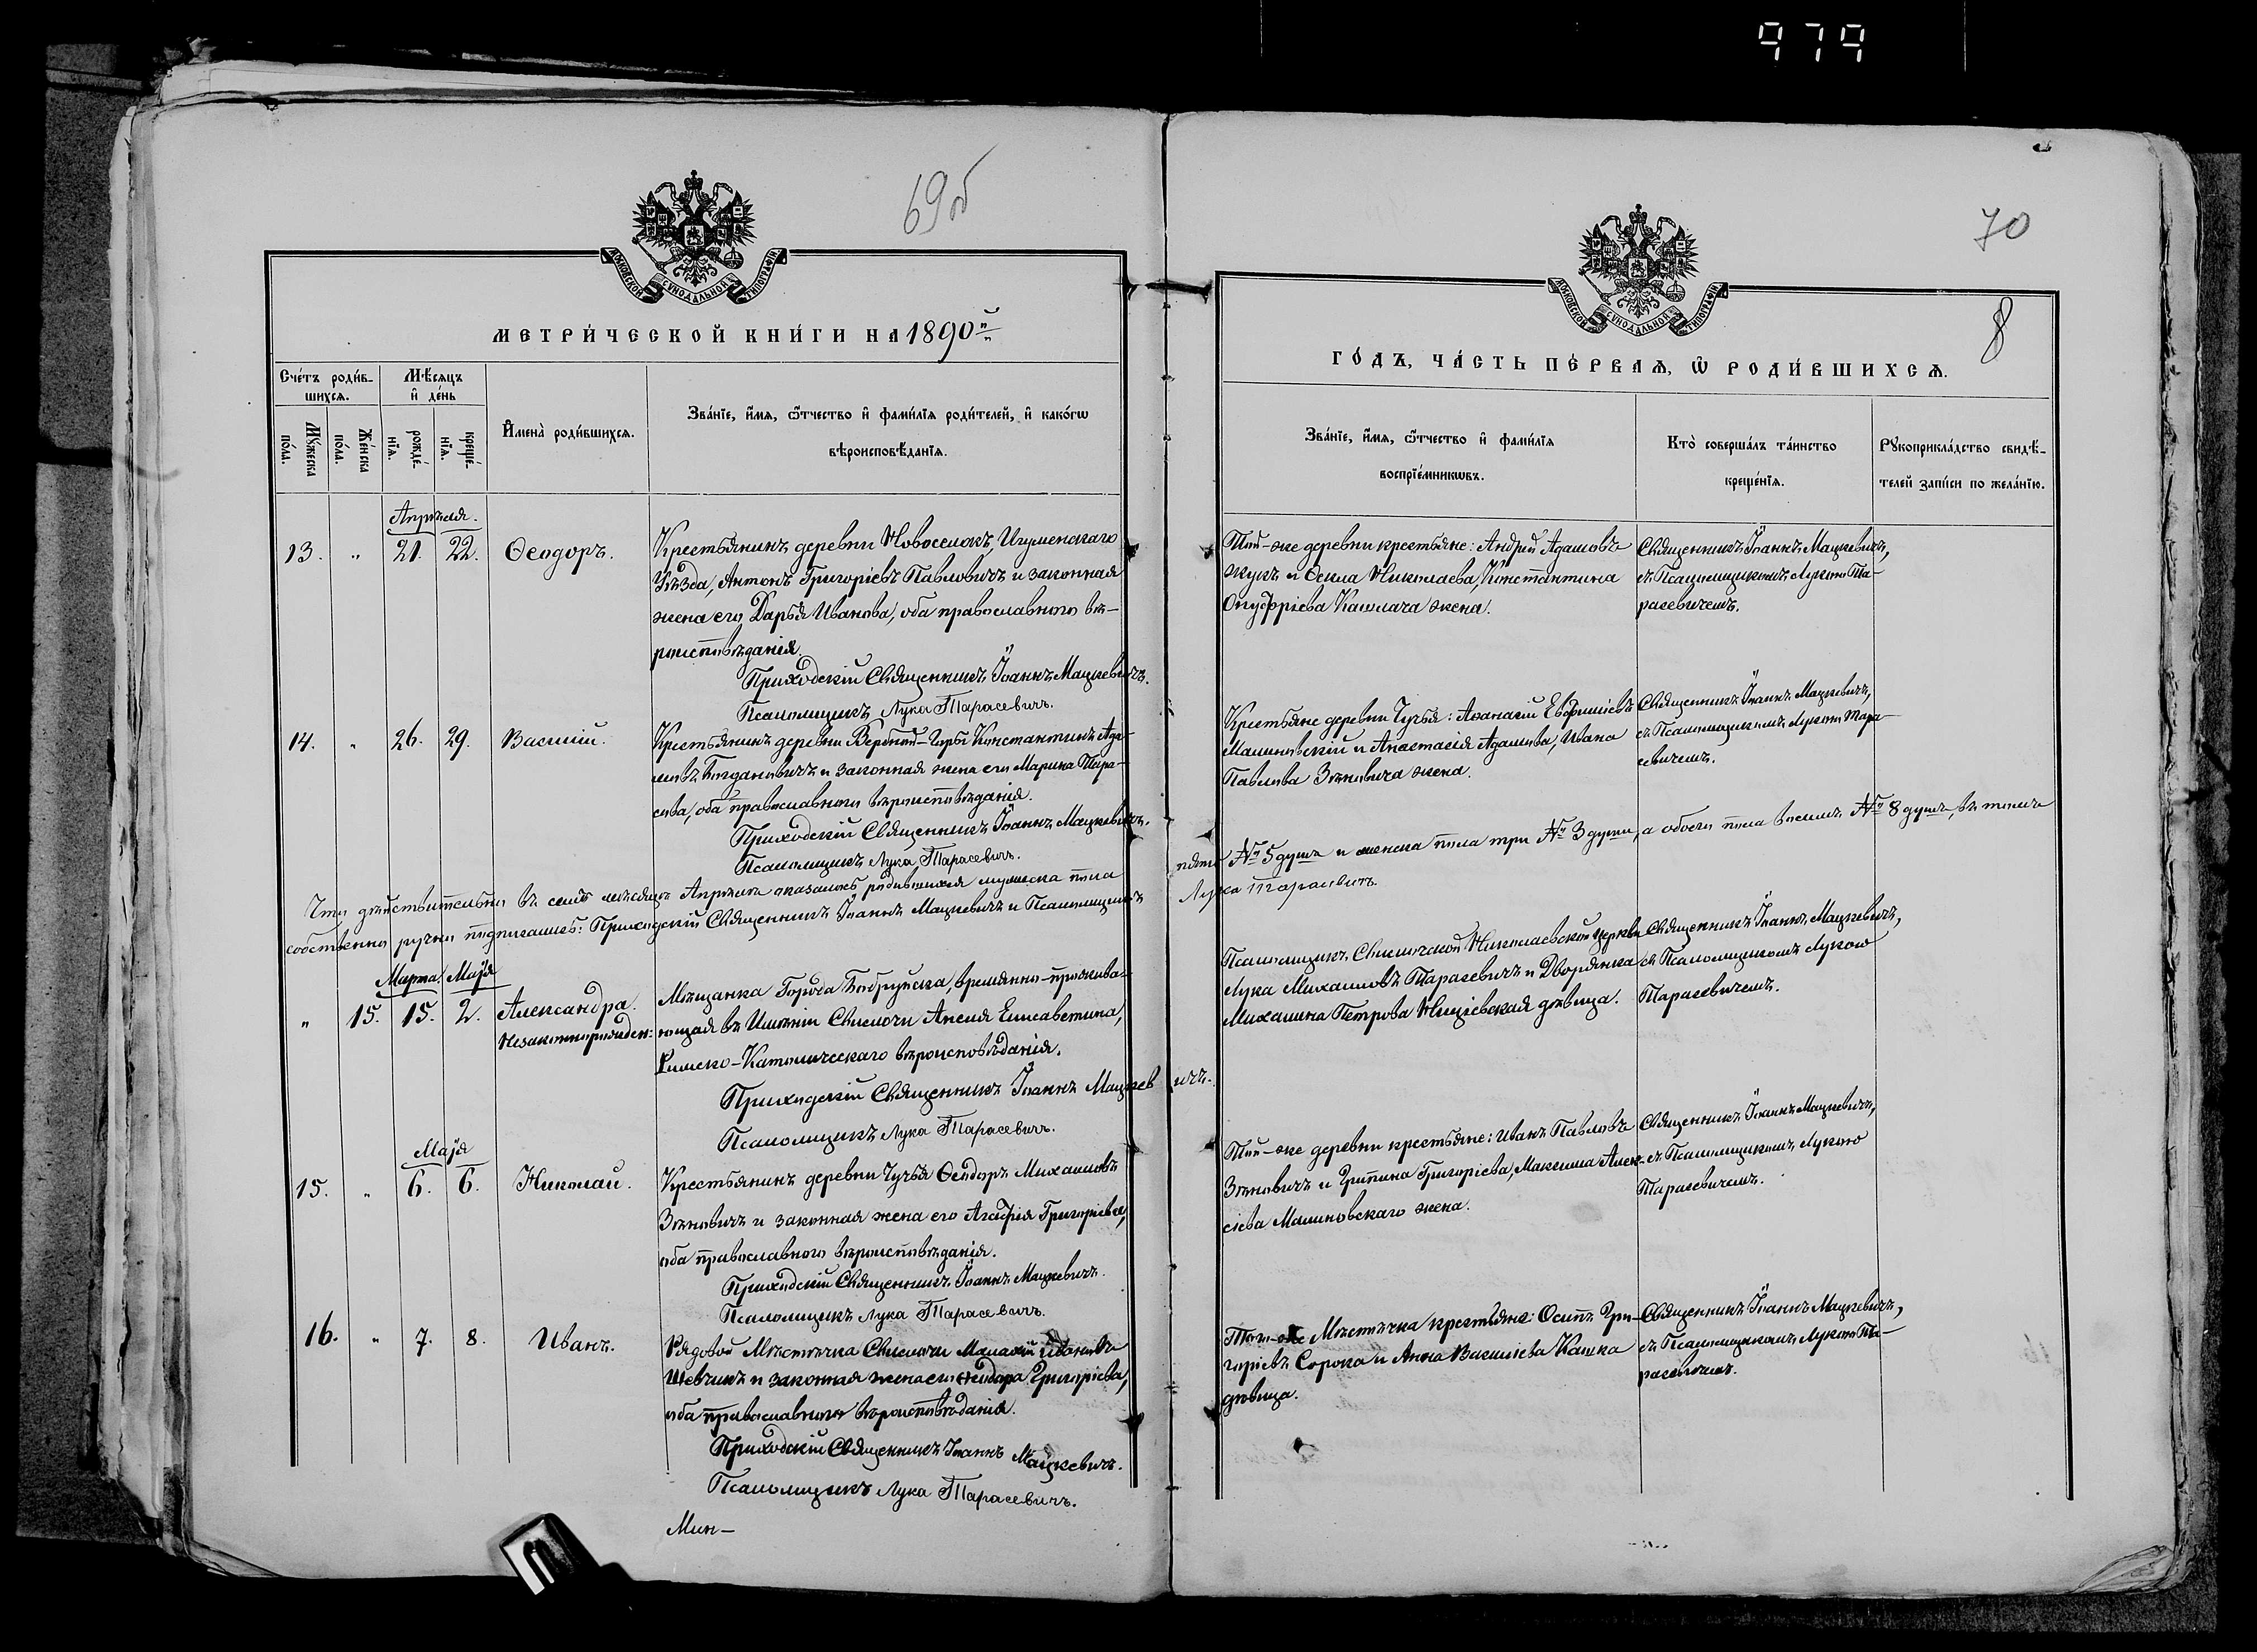 979
69 об
МОСКОВСКОЙ СУНОДАЛЬНОЙ ТИПОГРАФІИ.
МЕТРИ́ЧЕСКОЙ КНИ́ГИ НА 1890й
Сче́тъ роди́в-
шихсѧ.
Мѣ́сѧцъ
и҆ де́нь
Мꙋ́жеска
по́ла.
Же́нска
по́ла.
рожде́-
нїѧ.
креще́-
нїѧ.
И҆мена̀ роди́вшихсѧ.
Зва́нїе, и҆́мѧ, ѻ҆́тчество и҆ фами́лїѧ роди́телей, и҆ како́гѡ
вѣроисповѣ́данїѧ.
Апрѣля.
13. " 21. 22. Ѳеодоръ.
Крестьянинъ деревни Новоселокъ, Игуменскаго
Уѣзда, Антонъ Григоріевъ Павловичъ и законная
жена его Дарья Иванова, оба православнаго вѣ-
роисповѣданія.
Приходскій Священникъ Іоаннъ Мацкевичъ.
Псаломщикъ Лука Тарасевичъ.
14. " 26. 29. Василій.
Крестьянинъ деревни Вербной-Горы Константинъ Ада-
мовъ Богдановичъ и законная жена его Марина Тара-
сова, оба православнаго вѣроисповѣданія.
Приходскій Священникъ Іоаннъ Мацкевичъ.
Псаломщикъ Лука Тарасевичъ.
Что дѣйствительно въ семъ мѣсяцѣ Апрѣлѣ оказалось родившихся мужеска пола
собственно ручно подписались: Приходскій Священникъ Іоаннъ Мацкевичъ и Псаломщикъ
Марта. Маія
" 15. 15. 2. Александра.
Незаконнорожден:
Мѣщанка Города Бобруйска, временно-прожива-
ющая въ Имѣніи Свислочи Анеля Елисаветина,
Римско-Католическаго вѣроисповѣданія.
Приходскій Священникъ Іоаннъ Мацкевичъ.
Псаломщикъ Лука Тарасевичъ.
Маія
15. " 6. 6. Николай.
Крестьянинъ деревни Чучья Ѳеодоръ Михаиловъ
Зѣновичъ и законная жена его Агафія Григоріева,
оба православнаго вѣроисповѣданія.
Приходскій Священникъ Іоаннъ Мацкевичъ.
Псаломщикъ Лука Тарасевичъ.
16. " 7. 8. Иванъ.
Рядовой Мѣстечка Свислочи Ивановъ
Шевчикъ и законная жена его Ѳеодора Григоріева,
оба православнаго вѣроисповѣданія.
Приходскій Священникъ Іоаннъ Мацкевичъ.
Псаломщикъ Лука Тарасевичъ.
Мин-
70
МОСКОВСКОЙ СУНОДАЛЬНОЙ ТИПОГРАФІИ.
8
ГО́ДЪ, ЧА́СТЬ ПЕ́РВАѦ, Ѡ҆ РОДИ́ВШИХСѦ.
Зва́нїе, и҆́мѧ, ѻ҆́тчество и҆ фами́лїѧ
воспрїе́мникѡвъ.
Кто̀ соверша́лъ та́инство
креще́нїѧ.
Рꙋкоприкла́дство свидѣ́-
телей за́писи по жела́нїю.
Той-же деревни крестьяне: Андрей Адамовъ
Жукъ и Ѳекла Николаева, Константина
Онуфріева Кашлача жена.
Священникъ Іоаннъ Мацкевичъ,
съ Псаломщикомъ Лукою Та-
расевичемъ.
Крестьяне деревни Чучья: Аѳанасій Евфиміевъ
Малиновскій и Анастасія Адамова, Ивана
Павлова Зѣновича жена.
Священникъ Іоаннъ Мацкевичъ,
съ Псаломщикомъ Лукою Тара-
севичемъ.
пять № 5 душъ и женска пола три № 3 души, а обоего пола восемь № 8 душъ, въ томъ
Лука Тарасевичъ.
Псаломщикъ Свислочской Николаевской церкви
Лука Михаиловъ Тарасевичъ и Дворянка
Михалина Петрова дѣвица.
Священникъ Іоаннъ Мацкевичъ,
съ Псаломщикомъ Лукою
Тарасевичемъ.
Той-же деревни крестьяне: Иванъ Павловъ
Зѣновичъ и Грипина Григоріева, Максима Алек-
сіева Малиновскаго жена.
Священникъ Іоаннъ Мацкевичъ,
съ Псаломщикомъ Лукою
Тарасевичемъ.
Того-же Мѣстечка крестьяне: Осипъ Гри-
горіевъ Сорока и Анна Василіева Кашка
дѣвица.
Священникъ Іоаннъ Мацкевичъ,
съ Псаломщикомъ Лукою Та-
расевичемъ.